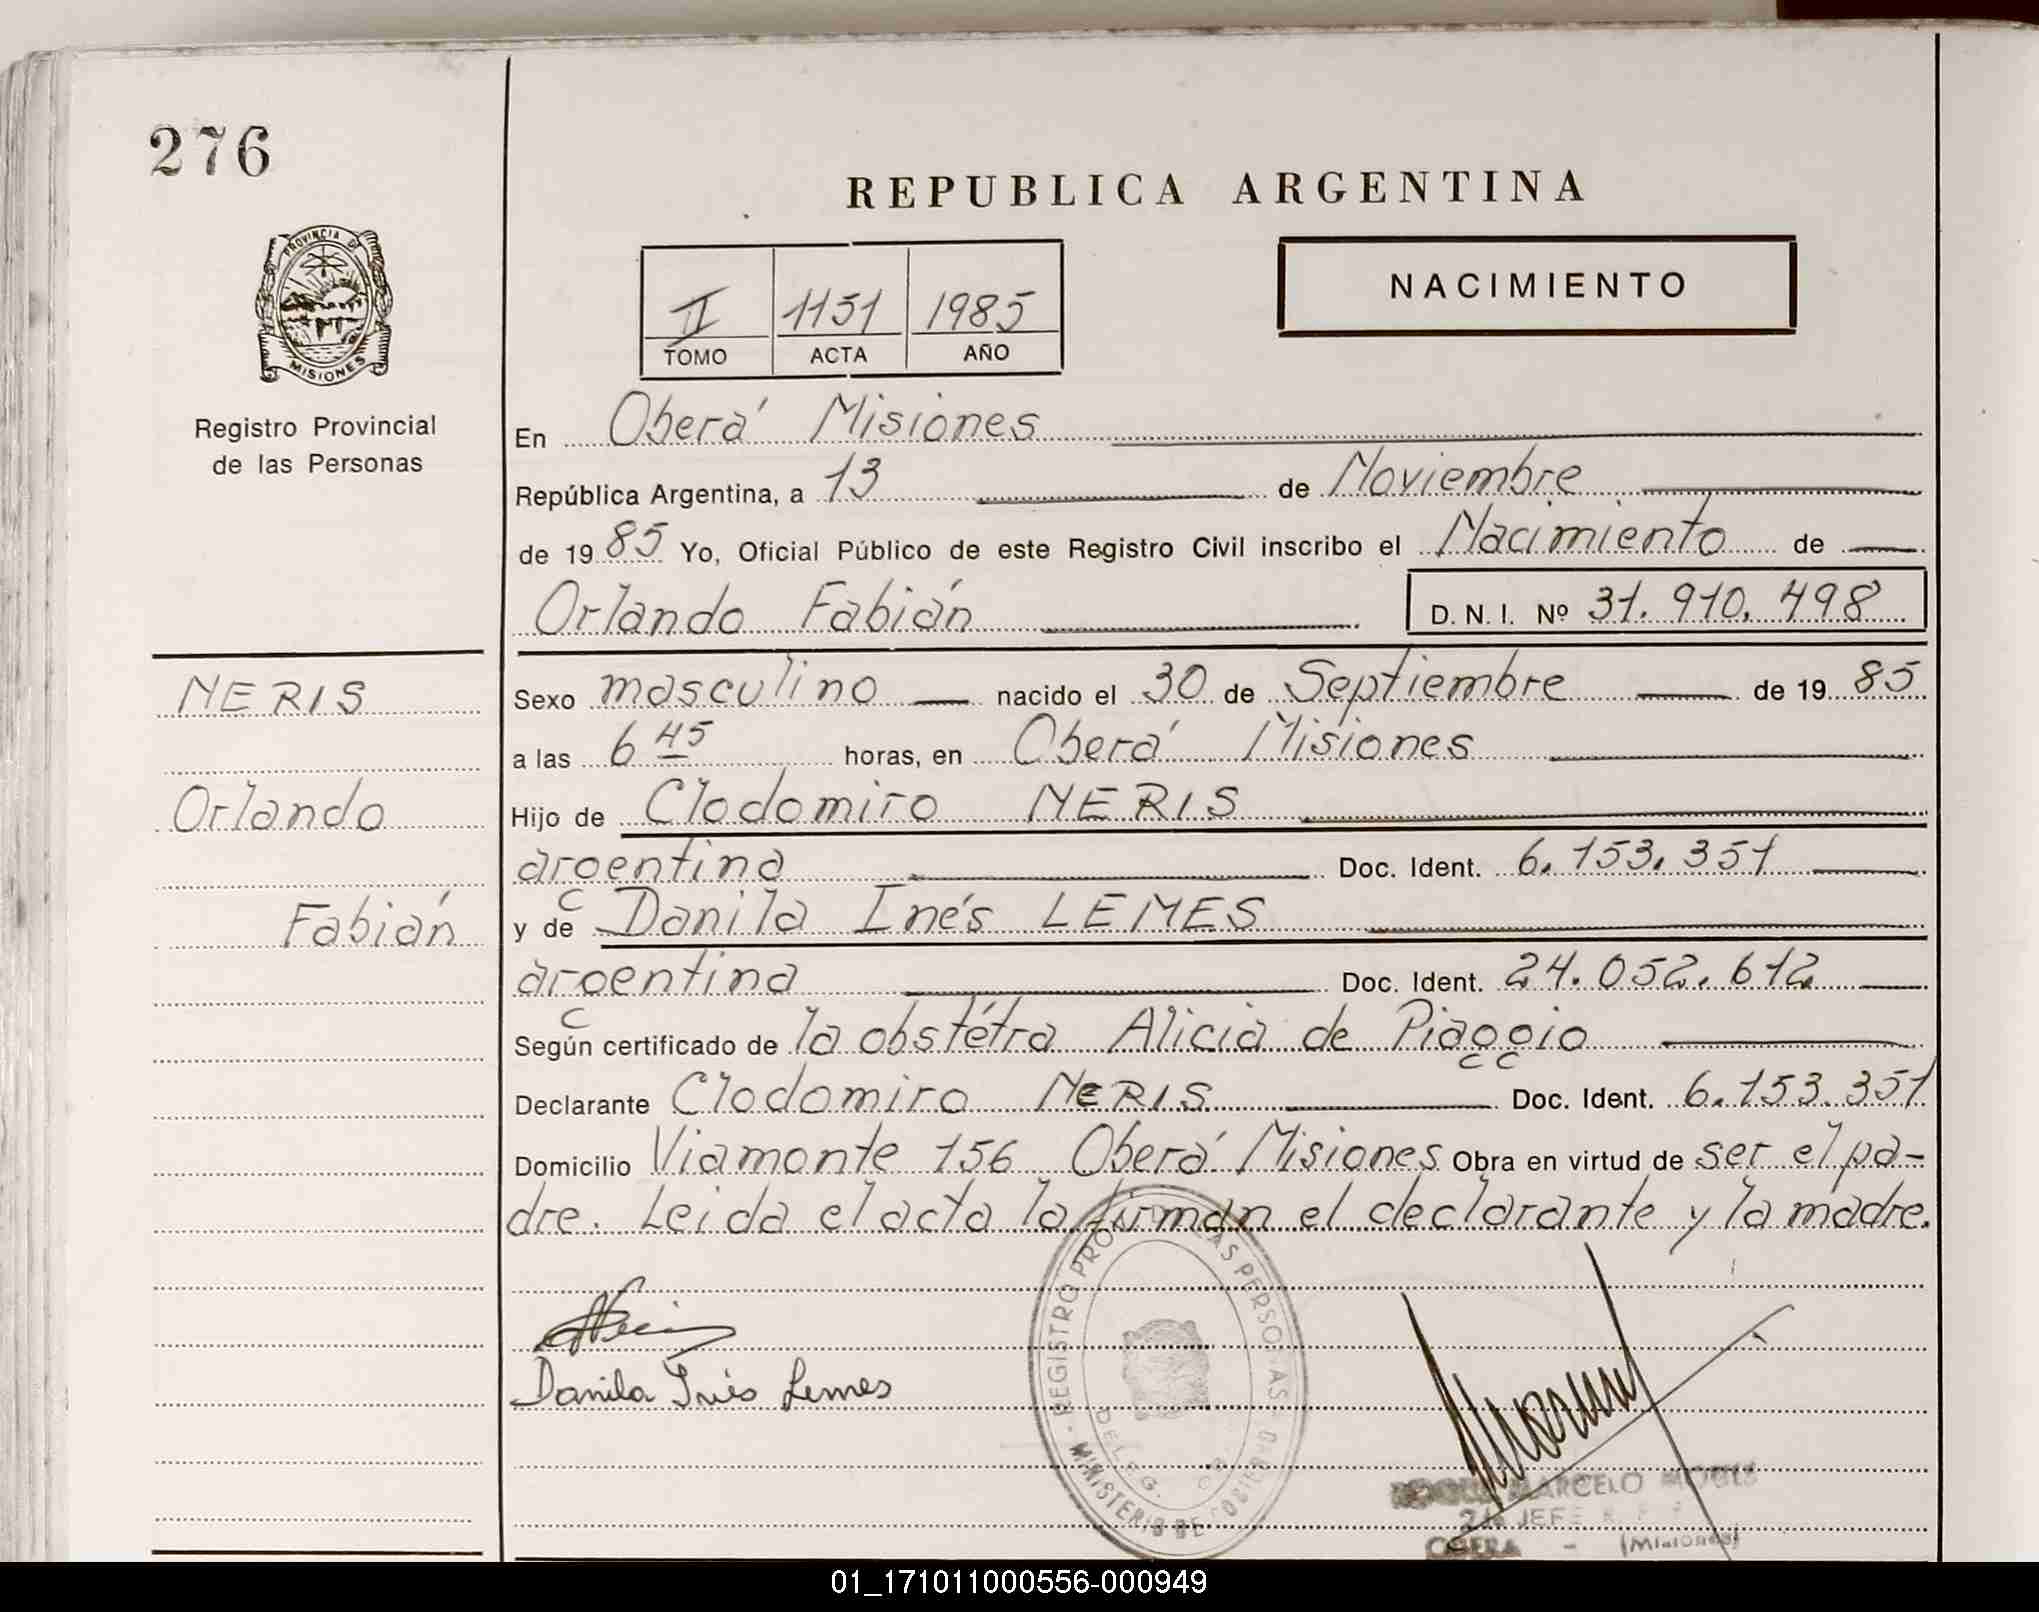 276
REPUBLICA ARGENTINA
NACIMIENTO
II 1151 1985
TOMO ACTA AÑO
PROVINCIA DE
MISIONES
Registro Provincial
de las Personas
En Oberá Misiones
República Argentina, a 13 de Noviembre
de 1985 Yo, Oficial Público de este Registro Civil inscribo el Nacimiento de
Orlando Fabián D.N.I. Nº 31.910.498
NERIS
Orlando
Fabián
Sexo masculino nacido el 30 de Septiembre de 1985
a las 6 45 horas, en Oberá Misiones
Hijo de Clodomiro NERIS
argentina Doc. Ident. 6.153.351
y de Danila Inés LEMES
argentina Doc. Ident. 24.052.612
Según certificado de la obstétra Alicia de Piaggio
Declarante Clodomiro NERIS Doc. Ident. 6.153.351
Domicilio Viamonte 156 Oberá Misiones Obra en virtud de ser el pa-
dre. Leida el acta la firman el declarante y la madre.
Danila Inés Lemes
REGISTRO LAS PERSONAS
DELEG.
MINISTERIO DE
MARCELO
JEFE
OBERA - (Misiones)
01_171011000556-000949